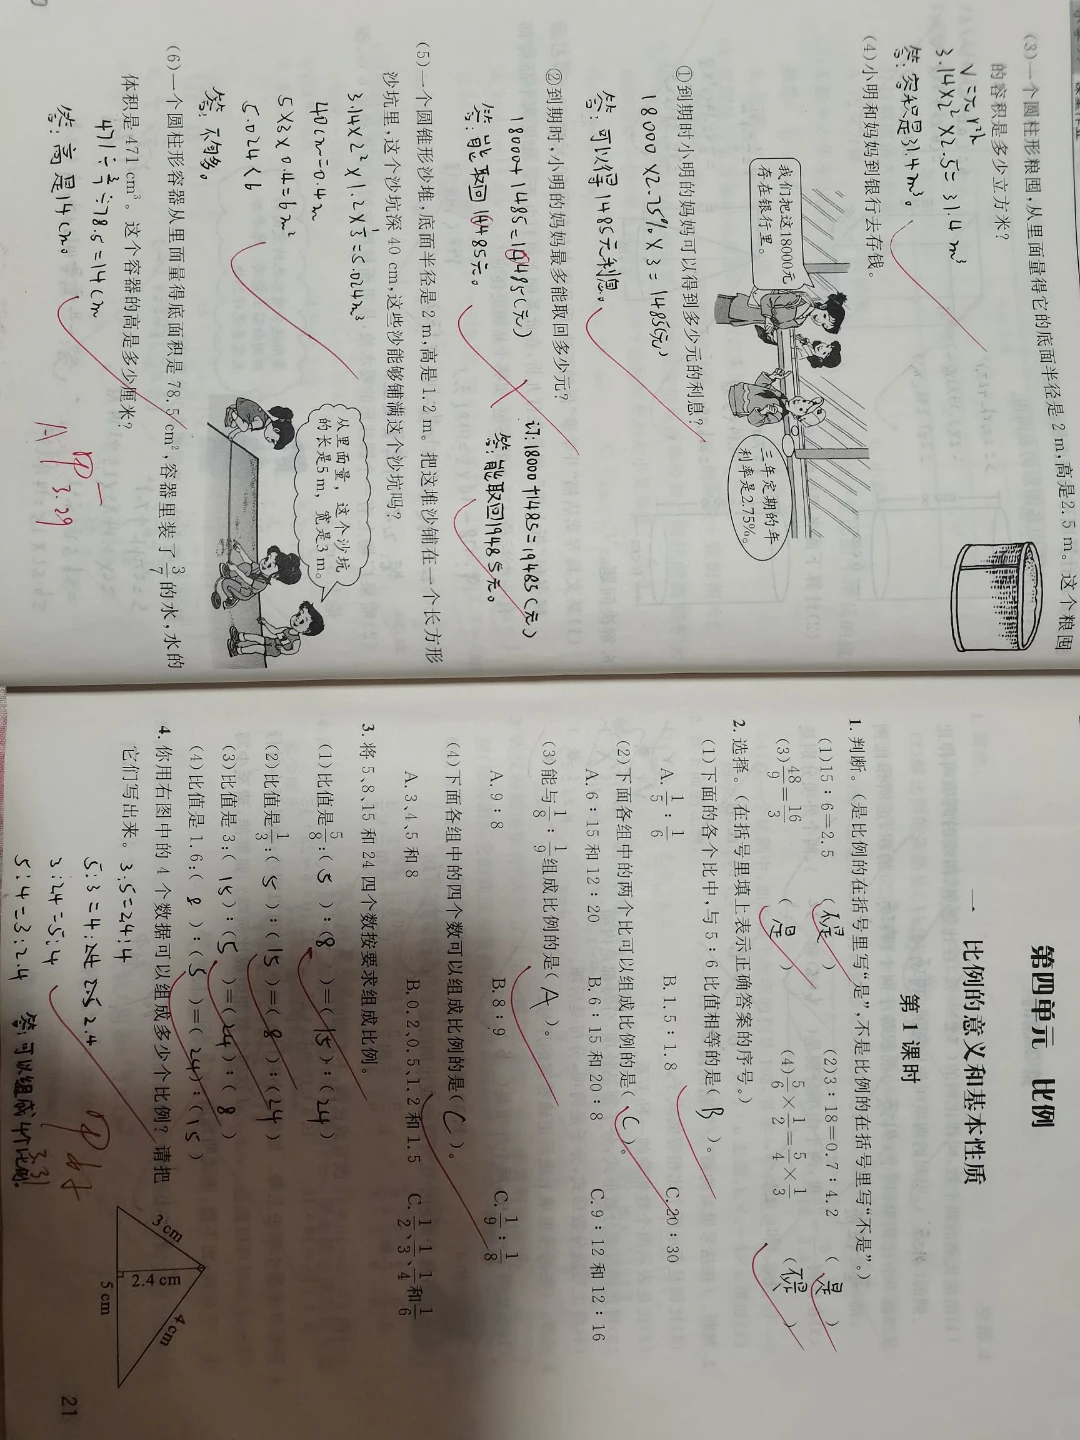 (3)一个圆柱形粮囤,从里面量得它的底面半径是 2 m,高是2.5 m。这个粮囤
的容积是多少立方米?
V=πr²h
3.14×2²×2.5=31.4m³
答:容积是31.4m³。
(4)小明和妈妈到银行去存钱。
我们把这18000元
存在银行里。
三年定期的年
利率是2.75%。
①到期时小明的妈妈可以得到多少元的利息?
18000×2.75%×3=1485(元)
答:可以得1485元利息。
②到期时,小明的妈妈最多能取回多少元?
18000+1485=19485(元)
答:能取回19485元。
订:18000+1485=19485(元)
答:能取回19485元。
(5)一个圆锥形沙堆,底面半径是 2 m,高是1.2 m。把这堆沙铺在一个长方形
沙坑里,这个沙坑深 40 cm,这些沙能够铺满这个沙坑吗?
3.14×2²×1.2×1/3=5.024m³
40cm=0.4m
5×3×0.4=6m²
5.024<6
答:不够。
从里面量,这个沙坑
的长是5 m,宽是3 m。
(6)一个圆柱形容器从里面量得底面积是 78.5 cm²,容器里装了3/7的水,水的
体积是 471 cm³。这个容器的高是多少厘米?
471÷3/7÷78.5=14cm
答:高是14cm。
A
3.29
第四单元 比例
一 比例的意义和基本性质
第 1 课时
1. 判断。(是比例的在括号里写“是”,不是比例的在括号里写“不是”。)
(1)15∶6=2.5 (不是) (2)3∶18=0.7∶4.2 (是)
(3)48/9=16/3 (是) (4)5/6×1/2=5/4×1/3 (不是)
2. 选择。(在括号里填上表示正确答案的序号。)
(1)下面的各个比中,与 5∶6 比值相等的是(B)。
A. 1/5∶1/6 B. 1.5∶1.8 C. 20∶30
(2)下面各组中的两个比可以组成比例的是(C)。
A. 6∶15 和 12∶20 B. 6∶15 和 20∶8 C. 9∶12 和 12∶16
(3)能与1/8∶1/9组成比例的是(A)。
A. 9∶8 B. 8∶9 C. 1/9∶1/8
(4)下面各组中的四个数可以组成比例的是(C)。
A. 3、4、5 和 8 B. 0.2、0.5、1.2 和 1.5 C. 1/2、1/3、1/4和1/6
3. 将 5、8、15 和 24 四个数按要求组成比例。
(1)比值是5/8:(5)∶(8)=(15)∶(24)
(2)比值是1/3:(5)∶(15)=(8)∶(24)
(3)比值是 3:(15)∶(5)=(24)∶(8)
(4)比值是 1.6:(8)∶(5)=(24)∶(15)
4. 你用右图中的 4 个数据可以组成多少个比例?请把
它们写出来。
3:5=2.4:4
5:3=4:2.4
3:2.4=5:4
5:4=3:2.4
答:可以组成4个比例。
3.31
3 cm
4 cm
2.4 cm
5 cm
21